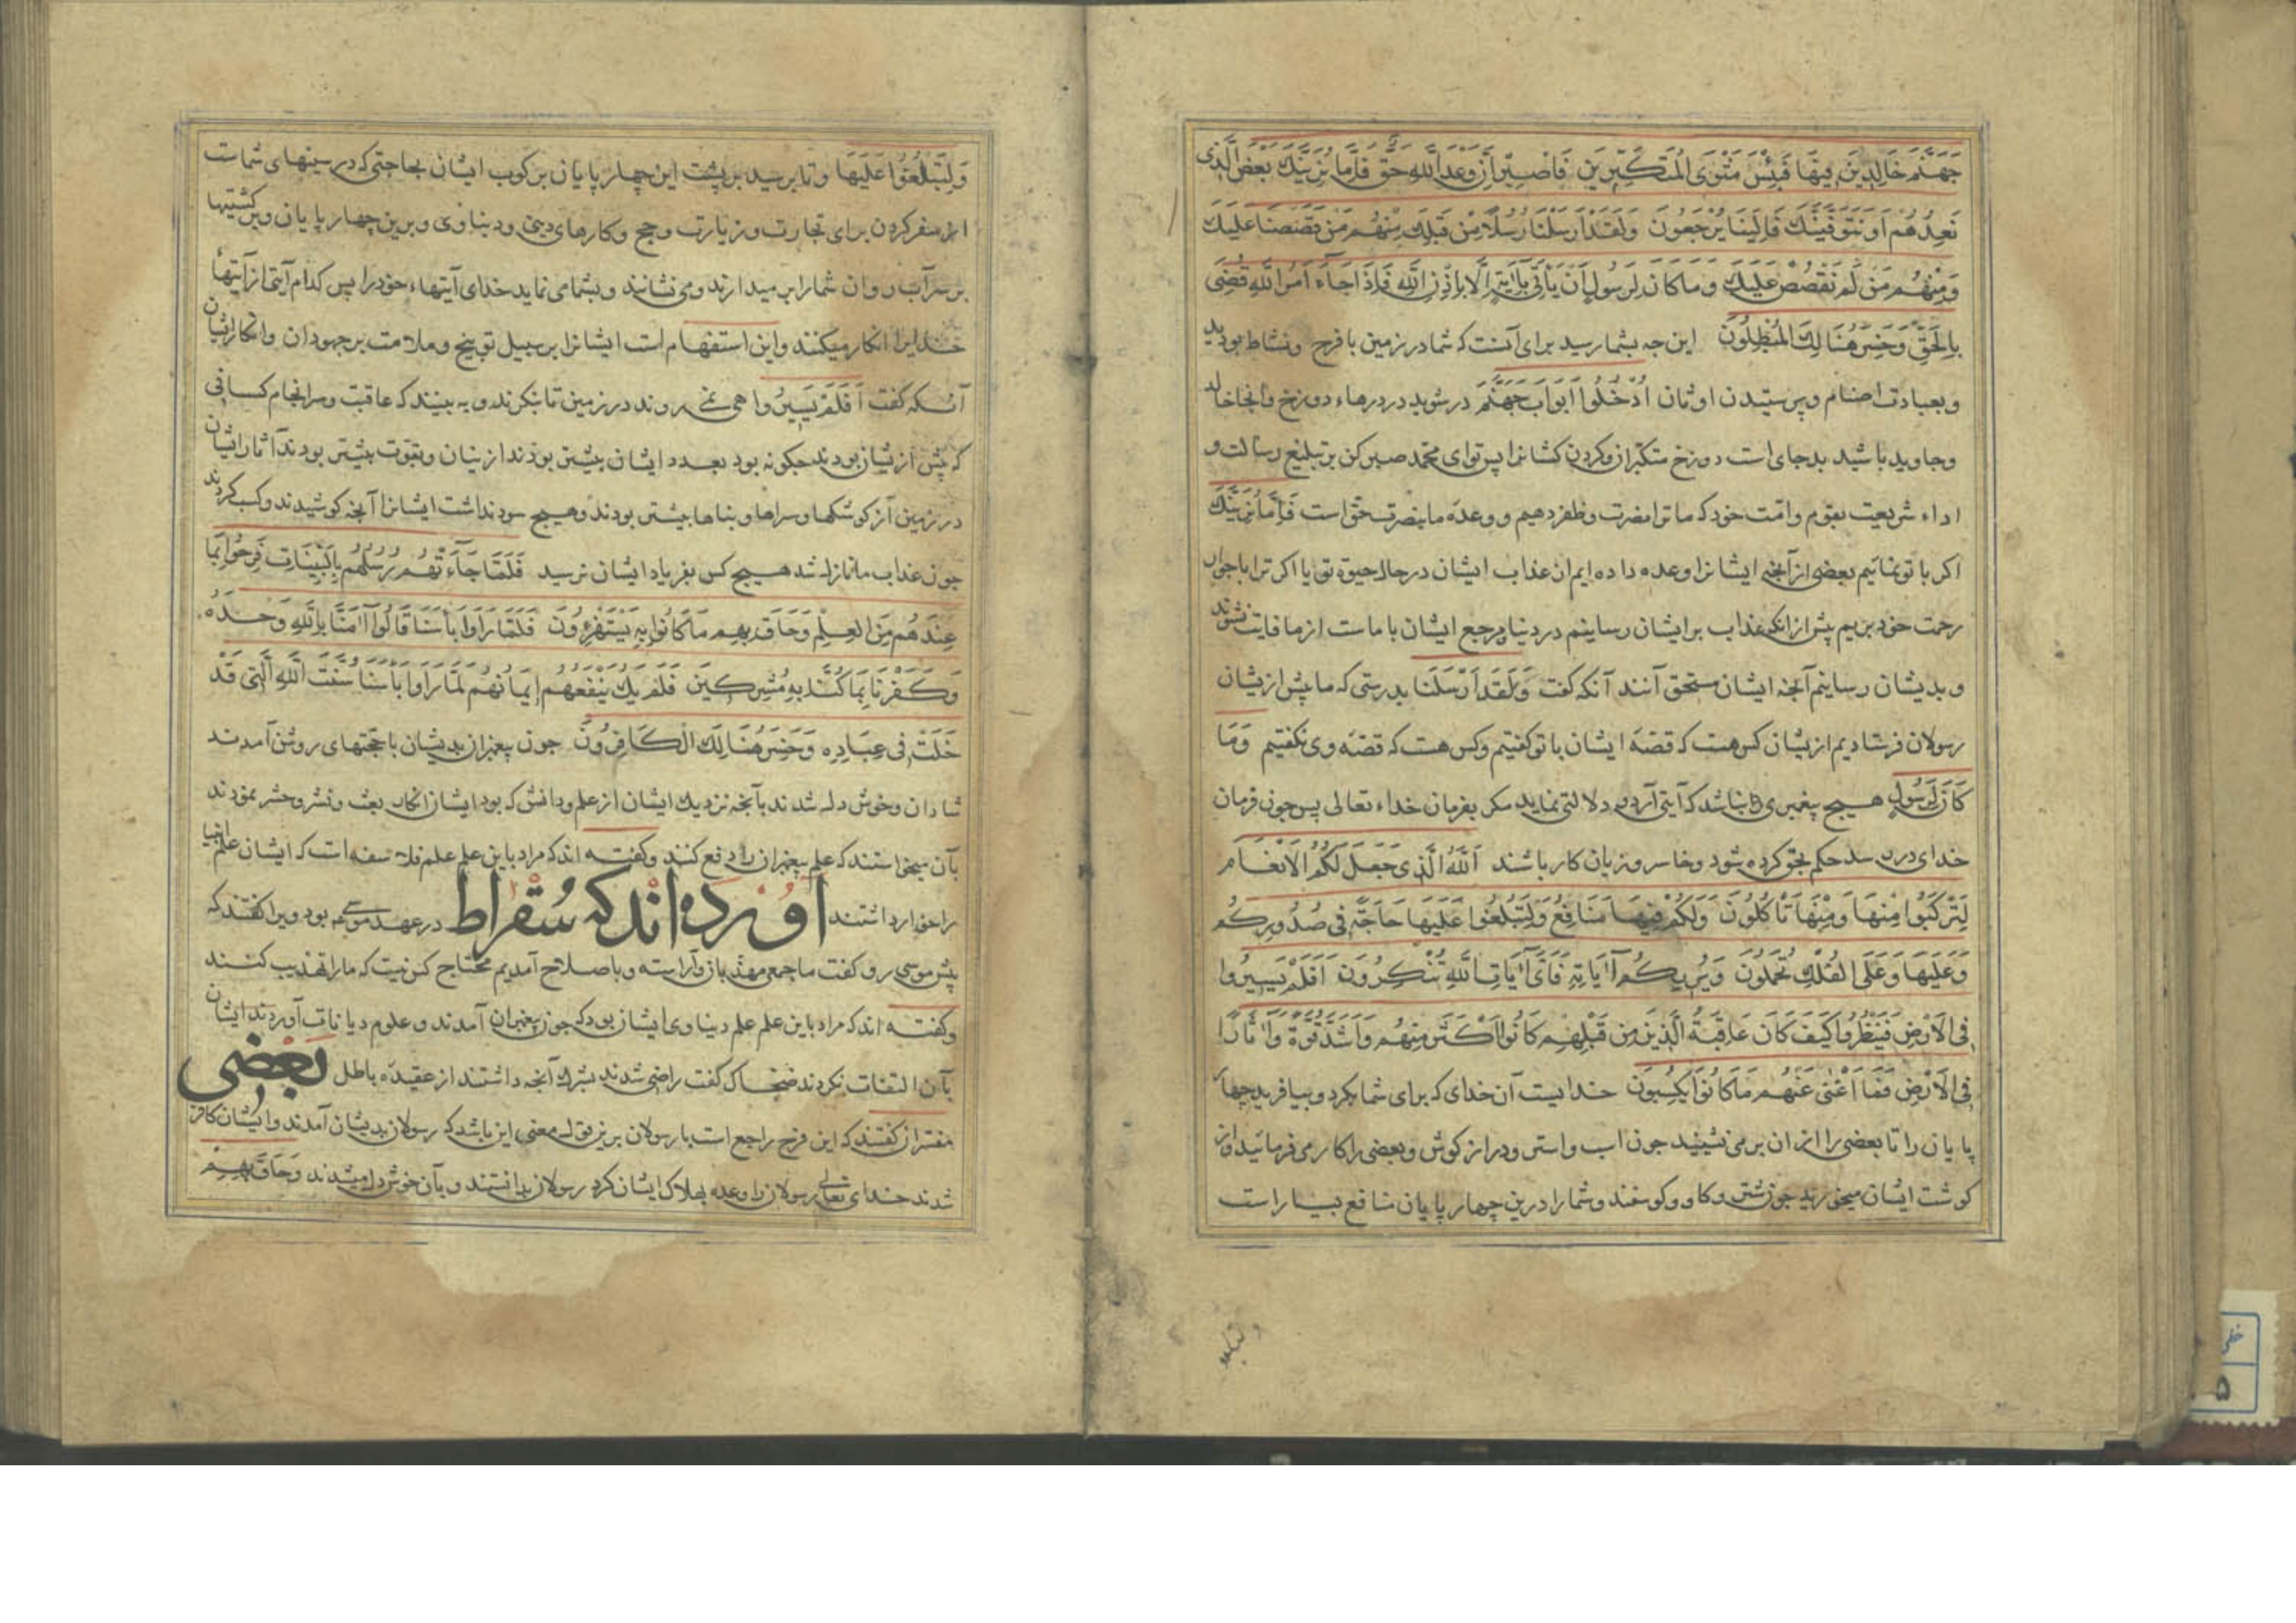 جَهَنَّمَ خَالِدِينَ فِيهَا فَبِئْسَ مَثْوَى الْمُتَكَبِّرِينَ فَاصْبِرْ اِنَّ وَعْدَ اللّٰهِ حَقٌّ فَاِمَّا نُرِيَنَّكَ بَعْضَ الَّذِي
نَعِدُهُمْ اَوْ نَتَوَفَّيَنَّكَ فَاِلَيْنَا يُرْجَعُونَ وَلَقَدْ اَرْسَلْنَا رُسُلًا مِنْ قَبْلِكَ مِنْهُمْ مَنْ قَصَصْنَا عَلَيْكَ
وَمِنْهُمْ مَنْ لَمْ نَقْصُصْ عَلَيْكَ وَمَا كَانَ لِرَسُولٍ اَنْ يَأْتِيَ بِاٰيَةٍ اِلَّا بِاِذْنِ اللّٰهِ فَاِذَا جَاءَ اَمْرُ اللّٰهِ قُضِيَ
بِالْحَقِّ وَخَسِرَ هُنَالِكَ الْمُبْطِلُونَ این جه بشما رسید برای آنست که شما در زمین با فرح ونشاط بودید
وبعبادت اصنام وپرستیدن اوثان اُدْخُلُوا اَبْوَابَ جَهَنَّمَ درشوید در درهاء دوزخ وآنجا خالد
وجاوید باشید بد جای است دوزخ متکبران وکردن کشانرا پس تو ای محمد صبر کن بر تبلیغ رسالت و
اداء شریعت بقوم وامّت خود که ما ترا نصرت وظفر دهیم ووعدهٔ ما بنصرت حق است فَاِمَّا نُرِيَنَّكَ
اکر با تو نمائیم بعضی از آنجه ایشانرا وعده داده ایم از عذاب ایشان در حال حیوة تو یا اکر ترا با جوار
رحمت خود بریم پیش از انکه عذاب بر ایشان رسانیم در دنیا مرجع ایشان با ماست از ما فایت نشوند
وبدیشان رسانیم آنجه ایشان مستحق آنند آنکه کفت وَلَقَدْ اَرْسَلْنَا بدرستی که ما پیش از یشان
رسولان فرستادیم از یشان کس هست که قصّهٔ ایشان با تو کفتیم وکس هست که قصّه وی نکفتیم وَمَا
كَانَ لِرَسُولٍ هیچ پیغمبری را نباشد که آیتی آرد ودلالتی نماید مکر بفرمان خداء تعالی پس جون فرمان
خدای در رسد حکم بحق کرده شود وخاسر وزیان کار باشند اَللّٰهُ الَّذِي جَعَلَ لَكُمُ الْاَنْعَامَ
لِتَرْكَبُوا مِنْهَا وَمِنْهَا تَأْكُلُونَ وَلَكُمْ فِيهَا مَنَافِعُ وَلِتَبْلُغُوا عَلَيْهَا حَاجَةً فِي صُدُورِكُمْ
وَعَلَيْهَا وَعَلَى الْفُلْكِ تُحْمَلُونَ وَيُرِيكُمْ اٰيَاتِهِ فَاَيَّ اٰيَاتِ اللّٰهِ تُنْكِرُونَ اَفَلَمْ يَسِيرُوا
فِي الْاَرْضِ فَيَنْظُرُوا كَيْفَ كَانَ عَاقِبَةُ الَّذِينَ مِنْ قَبْلِهِمْ كَانُوا اَكْثَرَ مِنْهُمْ وَاَشَدَّ قُوَّةً وَاٰثَارًا
فِي الْاَرْضِ فَمَا اَغْنَى عَنْهُمْ مَا كَانُوا يَكْسِبُونَ خدایست آن خدای که برای شما بکرد وبیافرید جهار
پایان را تا بعضی را از ان بر می نشینید جون اسب واستر ودراز کوش وبعضی را کار می فرمائید واز
کوشت ایشان میخورید جون شتر وکاو وکوسفند وشما را درین چهار پایان منافع بسیار است
وَلِتَبْلُغُوا عَلَيْهَا وتا برسید بر پشت این چهار پایان برکوب ایشان بحاجتی که در سینهای شماست
از سفر کردن برای تجارت وزیارت وحج وکارهای دینی ودنیاوی وبرین چهار پایان وبر کشتیها
بر سر آب روان شما را بر میدارند ومی نشانند وبشما می نماید خدای آیتهاء خود را پس کدام آیتی از آیتهاء
خدایرا انکار میکنند واین استفهام است ایشانرا بر سبیل توبیخ وملامت بر جهودان وانکار ایشان
آنکه کفت اَفَلَمْ يَسِيرُوا همی نمی روند در زمین تا بنکرند وبه بینند که عاقبت وسرانجام کسانی
که پیش از یشان بودند جکونه بود بعدد ایشان بیشتر بودند ازینان وبقوت بیشتر بودند آثار ایشان
در زمین از کوشکها وسراها وبناها بیشتر بودند وهیچ سود نداشت ایشانرا آنجه کوشیدند وکسب کردند
جون عذاب ما نازل شد هیچ کس بفریاد ایشان نرسید فَلَمَّا جَاءَتْهُمْ رُسُلُهُمْ بِالْبَيِّنَاتِ فَرِحُوا بِمَا
عِنْدَهُمْ مِنَ الْعِلْمِ وَحَاقَ بِهِمْ مَا كَانُوا بِهِ يَسْتَهْزِؤُنَ فَلَمَّا رَاَوْا بَأْسَنَا قَالُوا اٰمَنَّا بِاللّٰهِ وَحْدَهُ
وَكَفَرْنَا بِمَا كُنَّا بِهِ مُشْرِكِينَ فَلَمْ يَكُ يَنْفَعُهُمْ اِيمَانُهُمْ لَمَّا رَاَوْا بَأْسَنَا سُنَّتَ اللّٰهِ الَّتِي قَدْ
خَلَتْ فِي عِبَادِهِ وَخَسِرَ هُنَالِكَ الْكَافِرُونَ جون پیغمبران بدیشان با حجّتهای روشن آمدند
شادان وخوش دل شدند بآنجه نزدیک ایشان از علم ودانش که بود ایشان انکار بعث ونشر وحشر نمودند
بآن میخواستند که علم پیغمبران را دفع کنند وکفته اند که مراد باین علم علم فلاسفه است که ایشان علم انبیا
را خوار داشتند آورده اند که سُقراط در عهد موسی بود ویرا کفتند که
پیش موسی رو کفت ما جمعی مهذّبان وآراسته وباصلاح آمدیم محتاج کس نیست که ما را تهذیب کنند
وکفته اند که مراد باین علم علم دنیاوی ایشان بود که جون پیغمبران آمدند وعلوم دیانات آوردند ایشان
بآن التفات نکردند ضحاک کفت راضی شدند بشرک آنجه داشتند از عقیدهٔ باطل بعضی
مفسّران کفتند که این فرح راجع است با رسولان برین قول معنی این باشد که رسولان بدیشان آمدند وایشان کافر
شدند خدای تعالی رسولان را وعده بهلاک ایشان کرد رسولان بدانستند وبآن خوش دل میشدند وَحَاقَ بِهِمْ